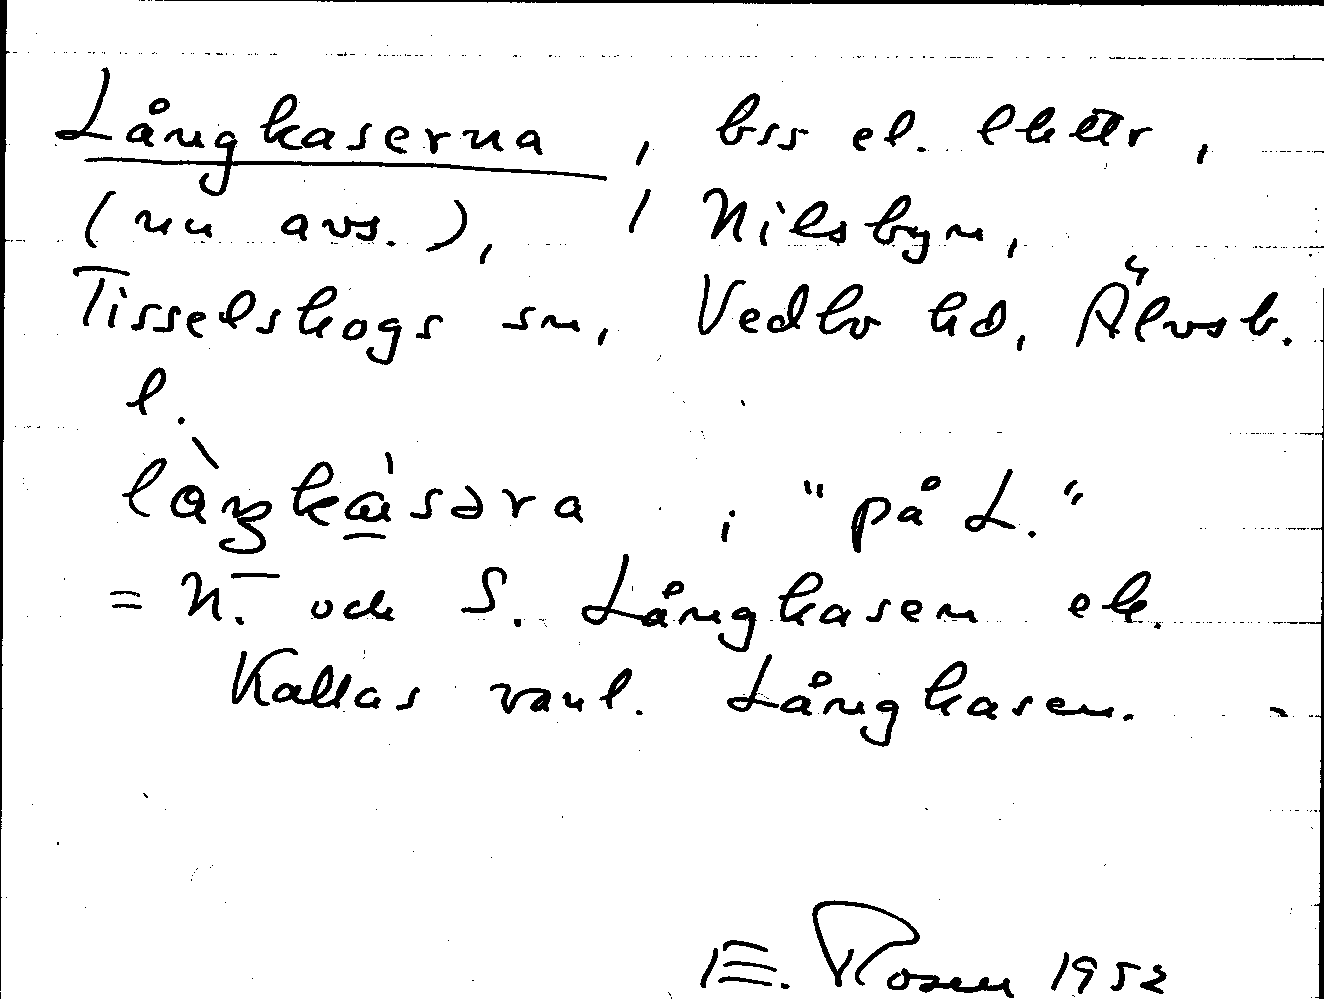 Långkaserna, bss el. lhtr,
(nu avs.), i Nilsbyn,
Tisselskogs sn, Vedbo hd, Älvsb.
l.
làŋkà̱səra ; "på L."
= N. och S. Långkasen ek.
Kallas vanl. Långkasen.
E. Rosen 1952